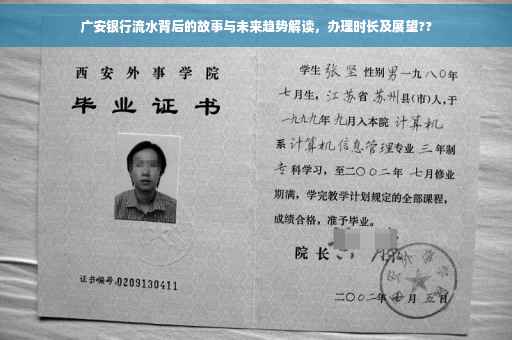 广安银行流水背后的故事与未来趋势解读，办理时长及展望??
西安外事学院
毕业证书
证书编号:0209130411
学生 张坚 性别 男 一九八〇年
七月生，江苏省 苏州县(市)人，于
一九九九年 九月入本院 计算机
系 计算机信息管理专业 三 年制
专科学习，至二〇〇二年 七月修业
期满，学完教学计划规定的全部课程，
成绩合格，准予毕业。
院长
二〇〇二年 月 五日